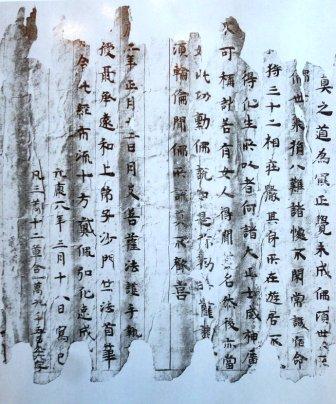 之道為寂正覺未成佛頃世世
世衆後八難諸惱不聞常識宿命
持三十二相莊嚴其身所在遊居
得化生所以者何諸人威神廣
不可稱計若有女人得聞名然後亦當
如此功勳佛說如是弥勒
須輪倫聞佛所說莫不歡喜
二年正月二日月支菩薩法護手執
授聶承遠和上弟子沙門竺法首筆
令此經布流十方載佩弘化速成
元康六年三月十八日寫已
凡三萬十二章合一萬九千五百九十六字